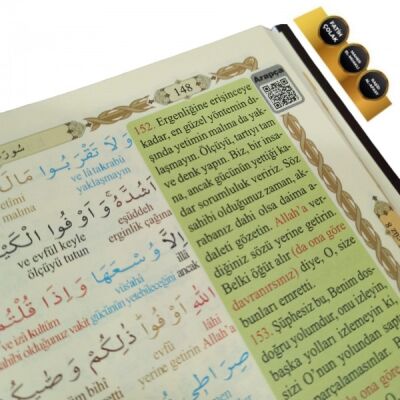 FATİH
ÇOLAK
148
Arapça
سُورَة
152. Ergenliğine erişinceye
kadar, en güzel yöntemin dı-
şında yetimin malına da yak-
laşmayın. Ölçüyü, tartıyı tam
ve denk yapın. Biz, bir insa-
na, ancak gücünün yettiği ka-
dar sorumluluk veririz. Söz
sahibi olduğunuz zaman, ak-
rabanız dahi olsa daima a-
daleti gözetin. Allah'a ver-
diğiniz sözü yerine getirin.
Belki öğüt alır (da ona göre
davranırsınız) diye, O, size
bunları emretti.
153. Şüphesiz bu, Benim dos-
doğru yolumdur, onu izleyin,
başka yolları izlemeyin ki,
sizi O'nun yolundan sapı
parçalamasınlar.
وَلَا تَقْرَبُوا مَالَ
ve lâ takrabû
yaklaşmayın
yetimi
malına
أَشُدَّهُ وَأَوْفُوا الْكَيْ
eşüddeh
erginlik çağına
ve evfül keyle
ölçüyü tutun
إِلَّا وُسْعَهَا وَإِذَا قُلْتُمْ
illâ
ancak
vüs'ahâ
gücünün yetebileceğini
ve izâ kultüm
sahibi olduğunuz vakit
اللَّهِ أَوْفُوا ذَٰلِكُمْ وَصَّيكُمْ
lâhi
Allah'a
evfû
yerine getirin
bihî
صِرَاطِي